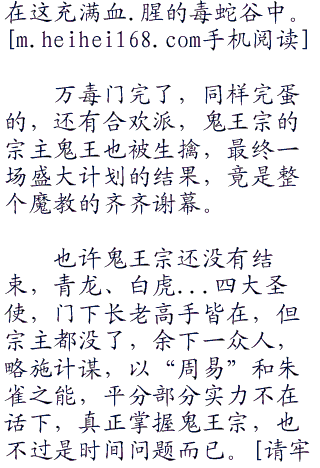 在这充满血.腥的毒蛇谷中。
[m.heihei168.com手机阅读]
万毒门完了，同样完蛋
的，还有合欢派，鬼王宗的
宗主鬼王也被生擒，最终一
场盛大计划的结果，竟是整
个魔教的齐齐谢幕。
也许鬼王宗还没有结
束，青龙、白虎...四大圣
使，门下长老高手皆在，但
宗主都没了，余下一众人，
略施计谋，以“周易”和朱
雀之能，平分部分实力不在
话下，真正掌握鬼王宗，也
不过是时间问题而已。[请牢